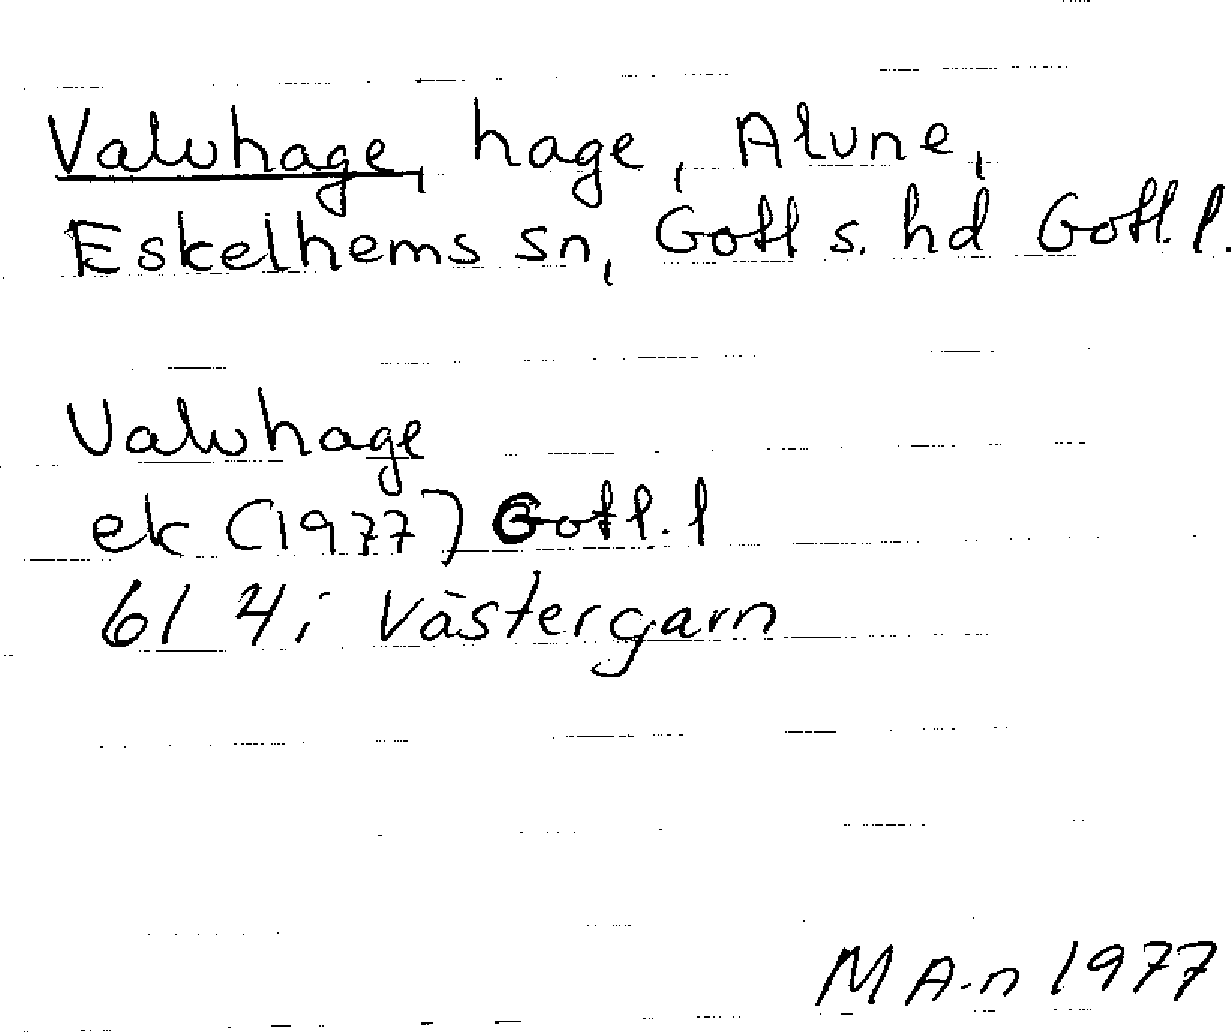 Valvhage, hage, Alvne,
Eskelhems sn, Gotl s. hd Gotl. l.
Valvhage
ek (1977) Gotl. l
6I 4i Västergarn
M A-n 1977